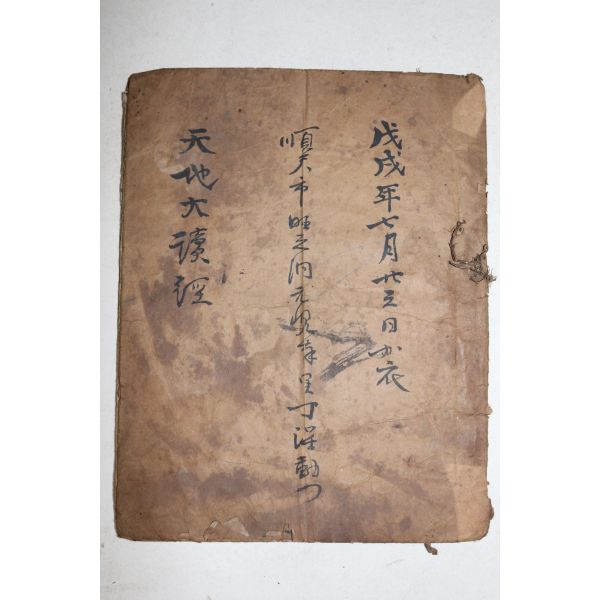 戊戌年七月廿三日加衣
順天市旺之洞元 里丁 動
天地大讀經